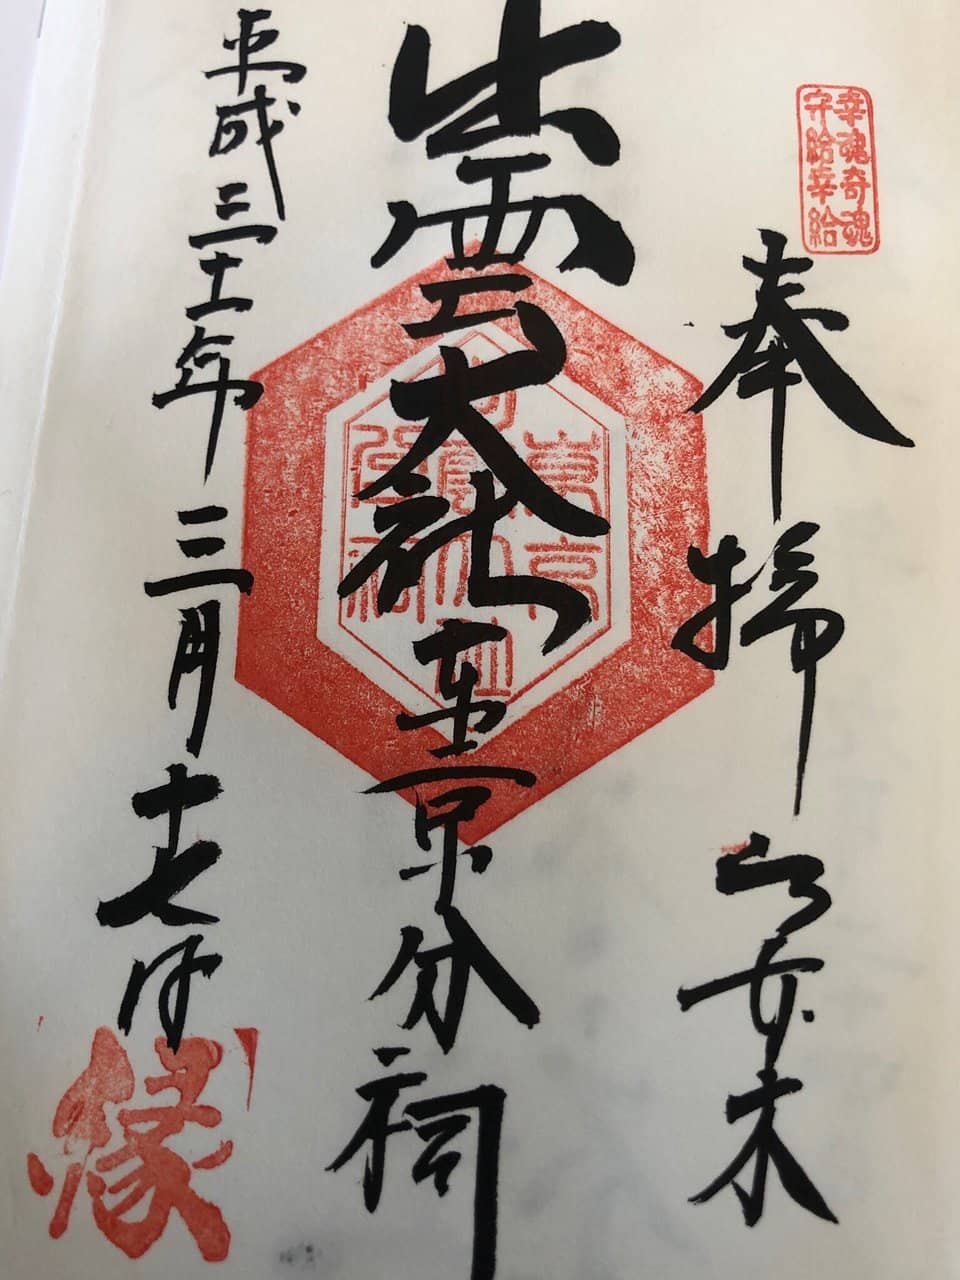 幸魂奇魂
守給幸給
奉拝
六本木
出雲大社東京分祠
平成三十一年三月十七日
縁